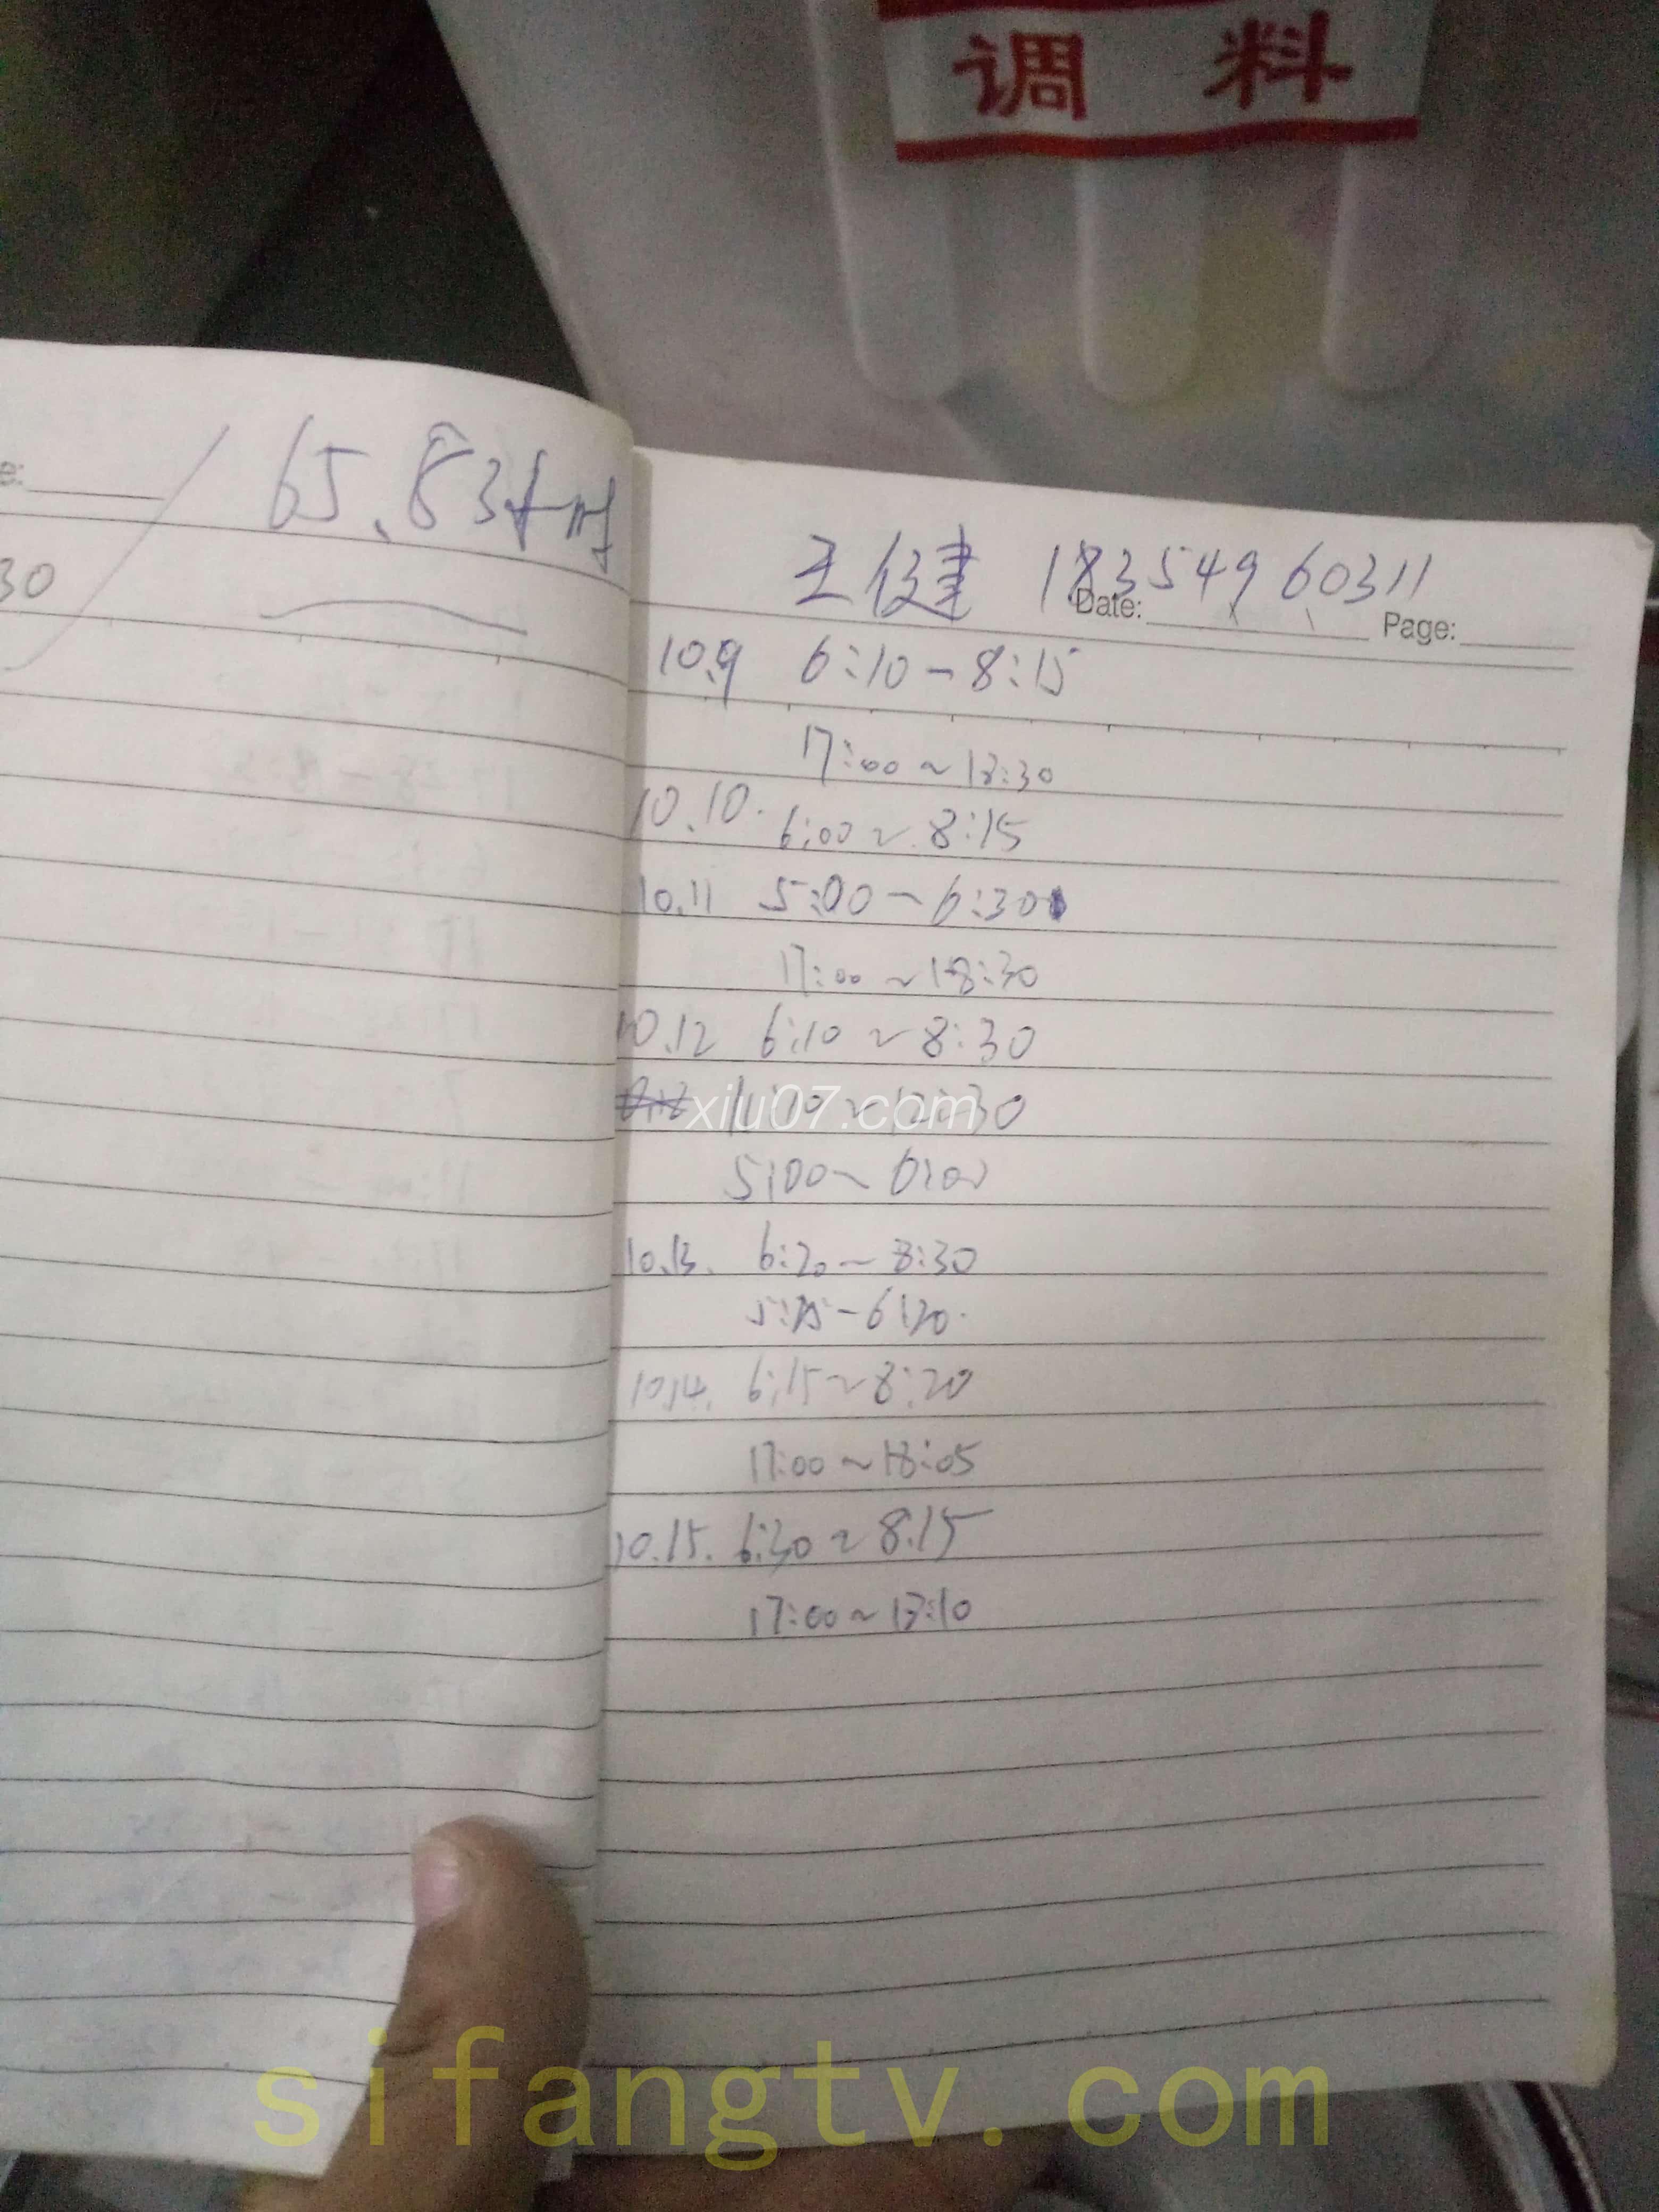 调 料
65.83小时
30
王健 18354960311
Date: Page:
10.9 6:10-8:15
17:00~18:30
10.10. 6:00~8:15
10.11 5:00-6:30
17:00~18:30
10.12 6:10~8:30
11:10~12:30
xiu07.com
5:00~6:00
10.13. 6:20-8:30
5:15-6:20.
10.14. 6:15~8:20
17:00~18:05
10.15. 6:30~8:15
17:00~18:10
sifangtv.com